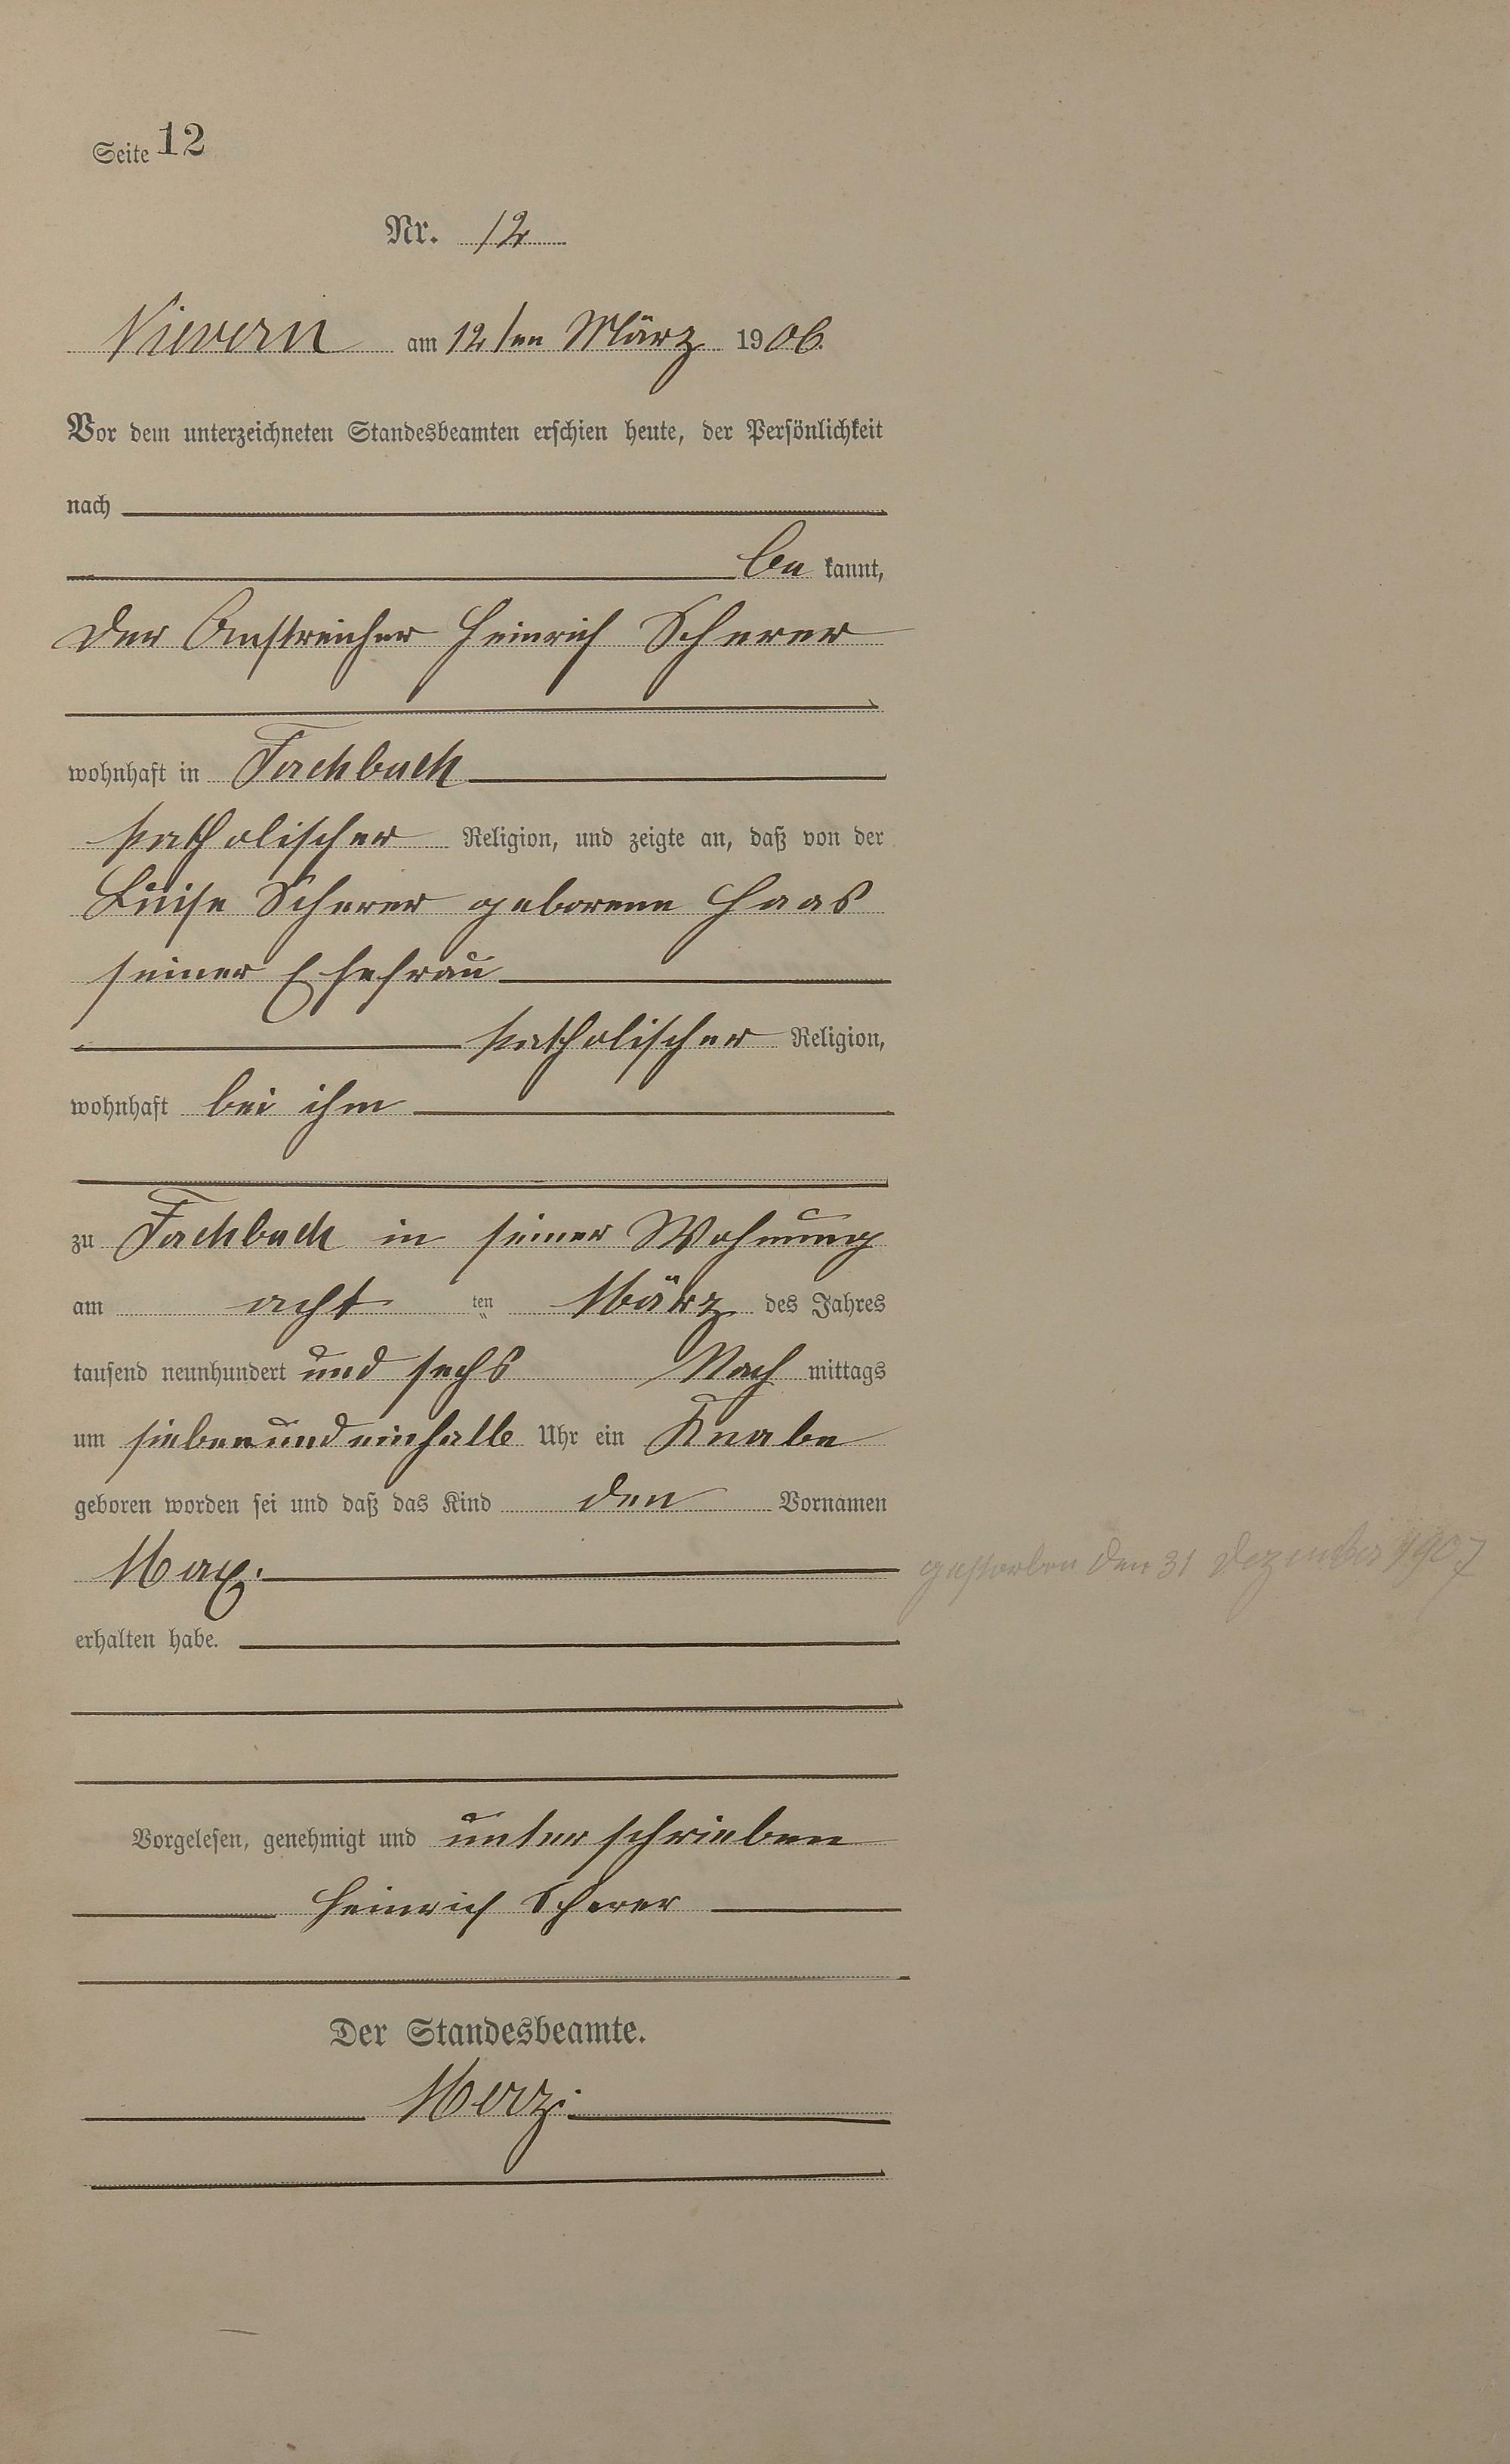 Seite 12
Nr. 12
Nievern am 12ten März 1906.
Vor dem unterzeichneten Standesbeamten erschien heute, der Persönlichkeit
nach
be kannt,
der Anstreicher Heinrich Scherer
wohnhaft in Fachbach
katholischer Religion, und zeigte an, daß von der
Luise Scherer geborene Haas
seiner Ehefrau
katholischer Religion,
wohnhaft bei ihm
zu Fachbach in seiner Wohnung
am acht ten März des Jahres
tausend neunhundert und sechs Nach mittags
um siebenundeinhalb Uhr ein Knabe
geboren worden sei und daß das Kind den Vornamen
Max.
gestorben den 31 Dezember 1907
erhalten habe.
Vorgelesen, genehmigt und unterschrieben
Heinrich Scherer
Der Standesbeamte.
Merz.